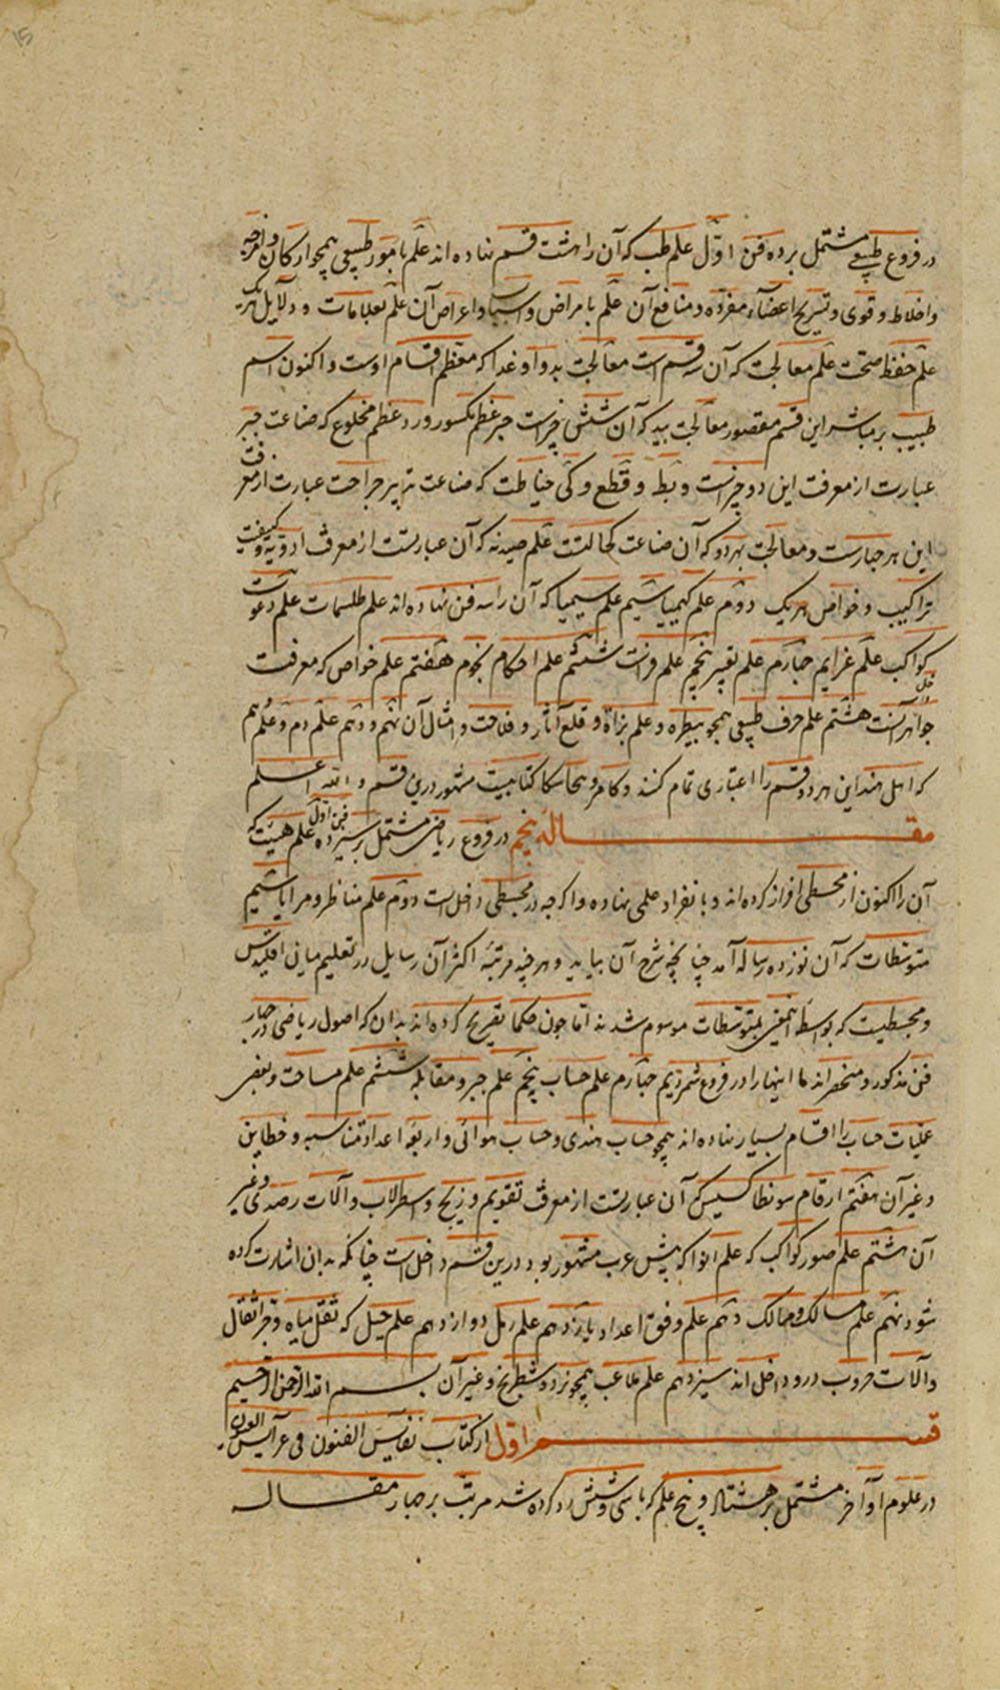 در فروع طبیعی مشتمل بر ده فن اوّل علم طب که آن را هشت قسم نهاده اند علم بامور طبیعی همچو ارکان و امزجه
و اخلاط و قوی و تشریح اعضآء مفرده و منافع آن علم بامراض و اسباب و اعراض آن علم بعلامات و دلایل هریک
علم حفظ صحّت علم معالجت که آن سه قسم است معالجت بدوا و غذا که معظم اقسام اوست و اکنون اسم
طبیب بر مباشر این قسم مقصور معالجت بید که آن شش چیز است جبر عظم مکسور و رد عظم مخلوع که صناعت جبر
عبارت از معرفت این دو چیزست و بطّ و قطع و کی و خیاطت که صناعت تدبیر جراحت عبارت از معرفت
این هر چهارست و معالجت بهر دو که آن صناعت کحالتست علم صیدنه که آن عبارتست از معرفت ادویه و کیفیت
تراکیب و خواص هریک دوّم علم کیمیا سیّم علم سیمیا که آن را سه فن نهاده اند علم طلسمات علم دعوت
کواکب علم عزایم چهارم علم تعبیر پنجم علم فراست ششم علم احکام نجوم هفتم علم خواص که معرفت
جواهر داخل آنست هشتم علم حرف طبیعی همچو بیطره و علم بزاة و قلع آثار و فلاحت و امثال آن نهم و دهم علم دم و علم وهم
که اهل هند این هر دو قسم را اعتباری تمام کنند و کامرو بحاسکا کتابیست مشهور درین قسم و الله اعلم
مقاله پنجم در فروع ریاضی مشتمل بر سیزده فن اول علم هیئت که
آن را اکنون از مجسطی افراز کرده اند و بانفراد علمی نهاده و اگرچه در مجسطی داخل است دوّم علم مناظر و مرایا سیّم
متوسّطات که آن نوزده رساله آمد چنانچه شرح آن بیاید و هرچند مرتبهٔ اکثر آن رسایل در تعلیم میان اقلیدس
و مجسطیست که بواسطه این معنی بمتوسّطات موسوم شدند امّا چون حکما تصریح کرده اند بدان که اصول ریاضی در چهار
فن مذکور و منحصراند ما اینها را در فروع شمردیم چهارم علم حساب پنجم علم جبر و مقابله ششم علم مساحت و بعضی
عملیات حساب را اقسام بسیار نهاده اند همچو حساب هندی و حساب هوائی و اربعهٔ اعداد متناسبه و خطاین
و غیر آن هفتم ارقام سونطاکسیس که آن عبارتست از معرفت تقویم و زیج و اسطرلاب و آلات رصدی و غیر
آن هشتم علم صور کواکب که علم انوا که پیش عرب مشهور بود درین قسم داخل است چنانکه بدان اشارت کرده
شود نهم علم مسالک و ممالک دهم علم وفق اعداد یازدهم علم رمل دوازدهم علم حیل که نقل میاه و جر اثقال
و آلات حروب درو داخل اند سیزدهم علم ملاعب همچو نرد و شطرنج و غیر آن بسم الله الرحمن الرحیم
قسم اوّل از کتاب نفایس الفنون فی عرآیس العیون
در علوم اوآخر مشتمل بر هشتاد و پنج علم که با سی و شش رد کرده شد مرتب بر چهار مقاله